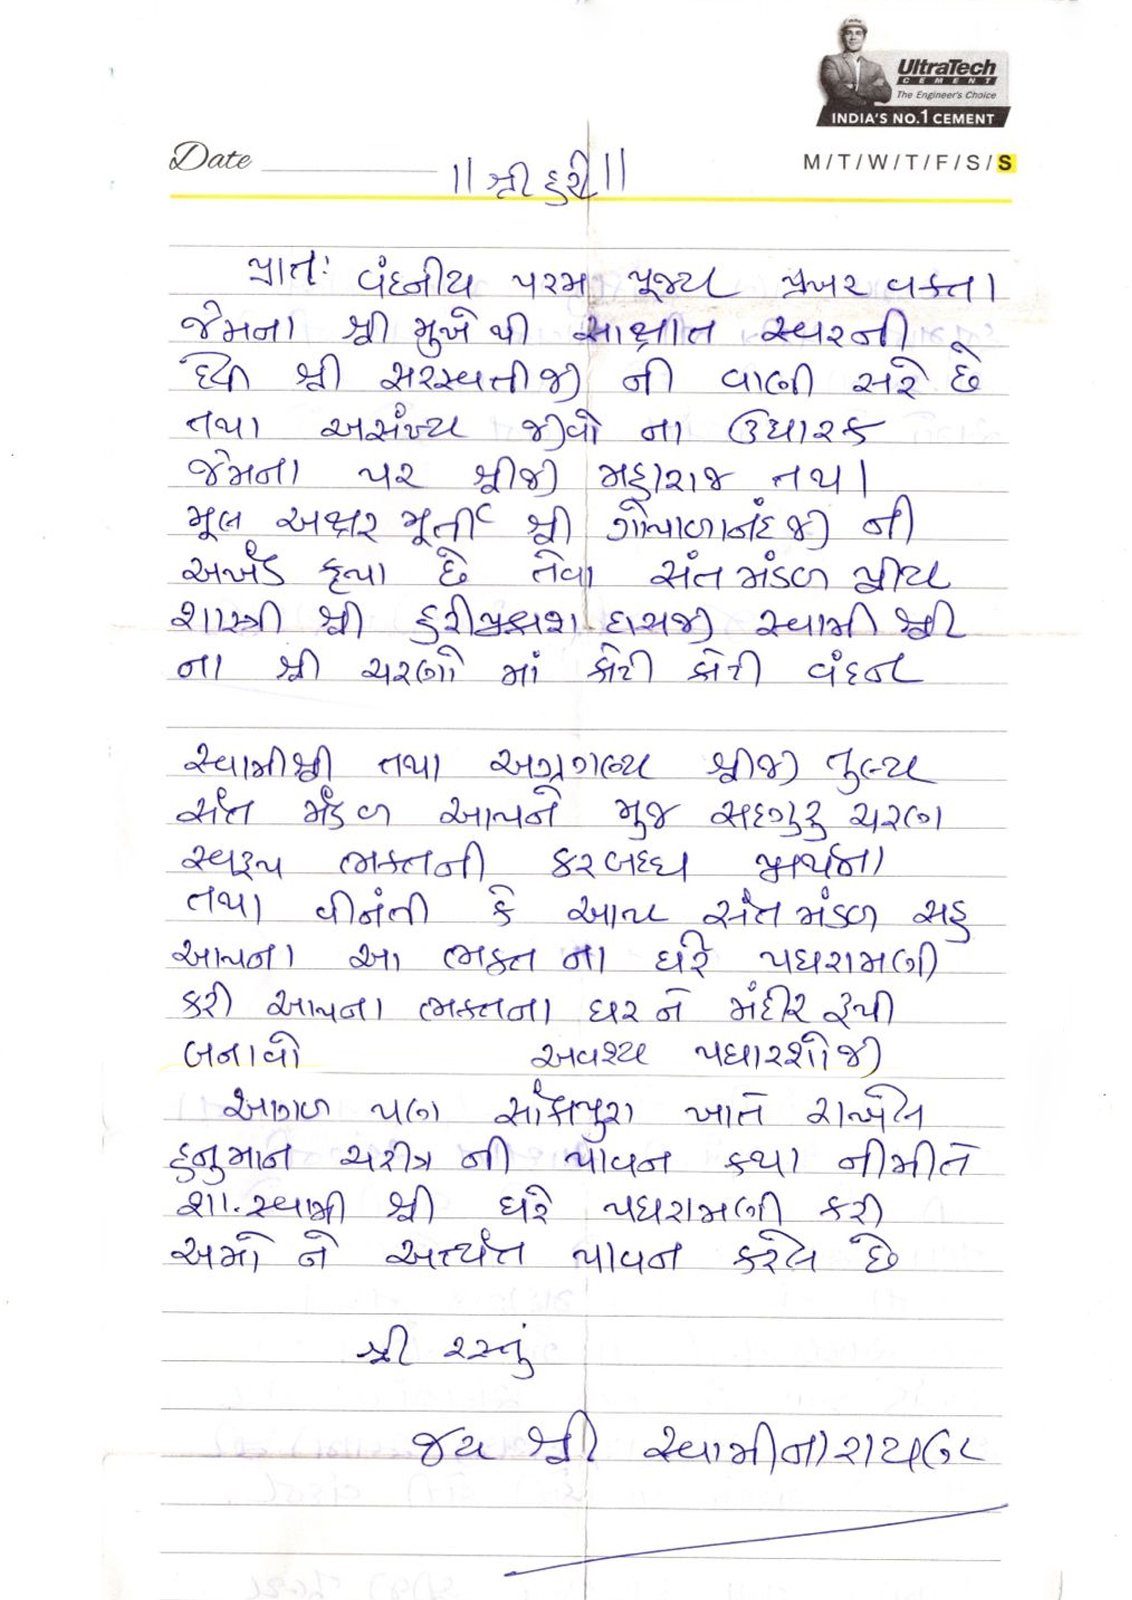 UltraTech
CEMENT
The Engineer's Choice
INDIA'S NO.1 CEMENT
Date
M/T/W/T/F/S/S
॥ શ્રી હરી ॥
પ્રાતઃ વંદનીય પરમ પૂજ્ય પ્રખર વક્તા
જેમના શ્રી મુખે થી સાક્ષાત સ્વરની
શ્રી સરસ્વતીજી ની વાણી સરે છે
તથા અસંખ્ય જીવો ના ઉધારક
જેમના પર શ્રીજી મહારાજ તથા
મૂલ અક્ષર મૂર્તી શ્રી ગોપાળાનંદજી ની
અખંડ કૃપા છે તેવા સંત મંડળ પ્રીય
શાસ્ત્રી શ્રી હરીપ્રકાશ દાસજી સ્વામી શ્રી
ના શ્રી ચરણો માં કોટી કોટી વંદન
સ્વામીશ્રી તથા અગ્રગણ્ય શ્રીજી તુલ્ય
સંત મંડળ આપને મુજ સદ્ગુરુ ચરણ
સ્વરૂપ ભક્તની કરબધ્ધ પ્રાર્થના
તથા વીનંતી કે આપ સંત મંડળ સહ
આપના આ ભક્ત ના ઘરે પધરામણી
કરી આપના ભક્તના ઘર ને મંદીર રૂપી
બનાવો અવશ્ય પધારશોજી
આગળ પણ ખાતે રાખેલ
હનુમાન ચરીત્ર ની પાવન કથા નીમીતે
શા. સ્વામી શ્રી ઘરે પધરામણી કરી
અમો ને અત્યંત પાવન કરેલ છે
શ્રી રસ્તું
જય શ્રી સ્વામીનારાયણ